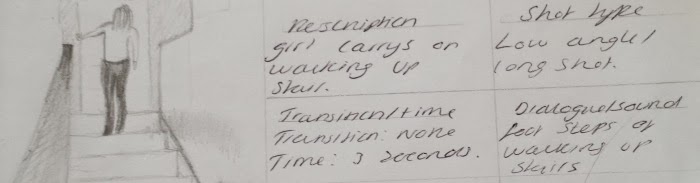 Description
girl carrys on
walking up
stair.
Shot type
Low angle/
long shot.
Transition/time
Transition: None
Time: 3 seconds.
Dialogue/sound
foot steps of
walking up
stairs